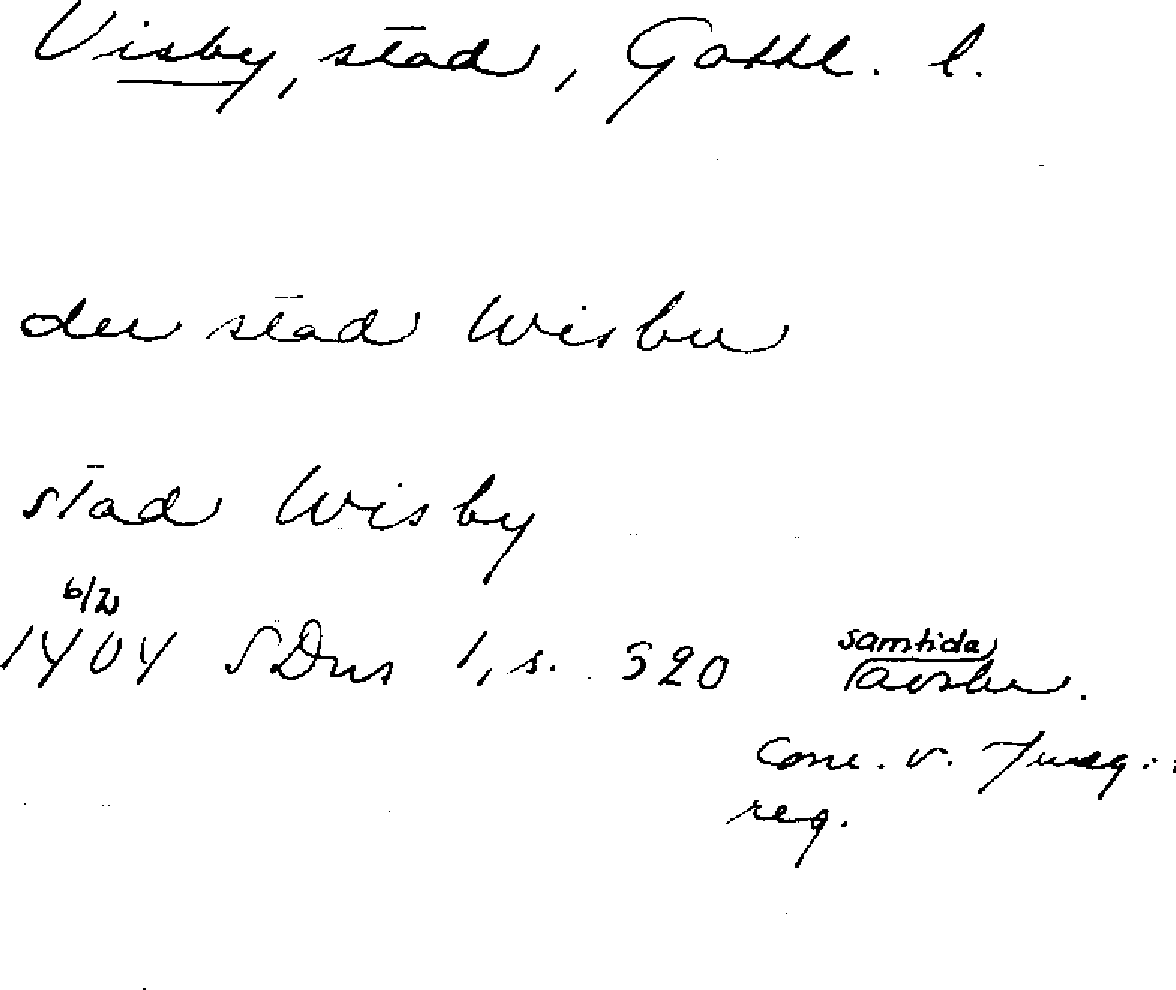 Visby, stad, Gottl. l.
der stad Wisbu
stad Wisby
6/2
1404 SDns 1, s. 320 samtida
avskr.
Conc. v. Jungg.:
reg.